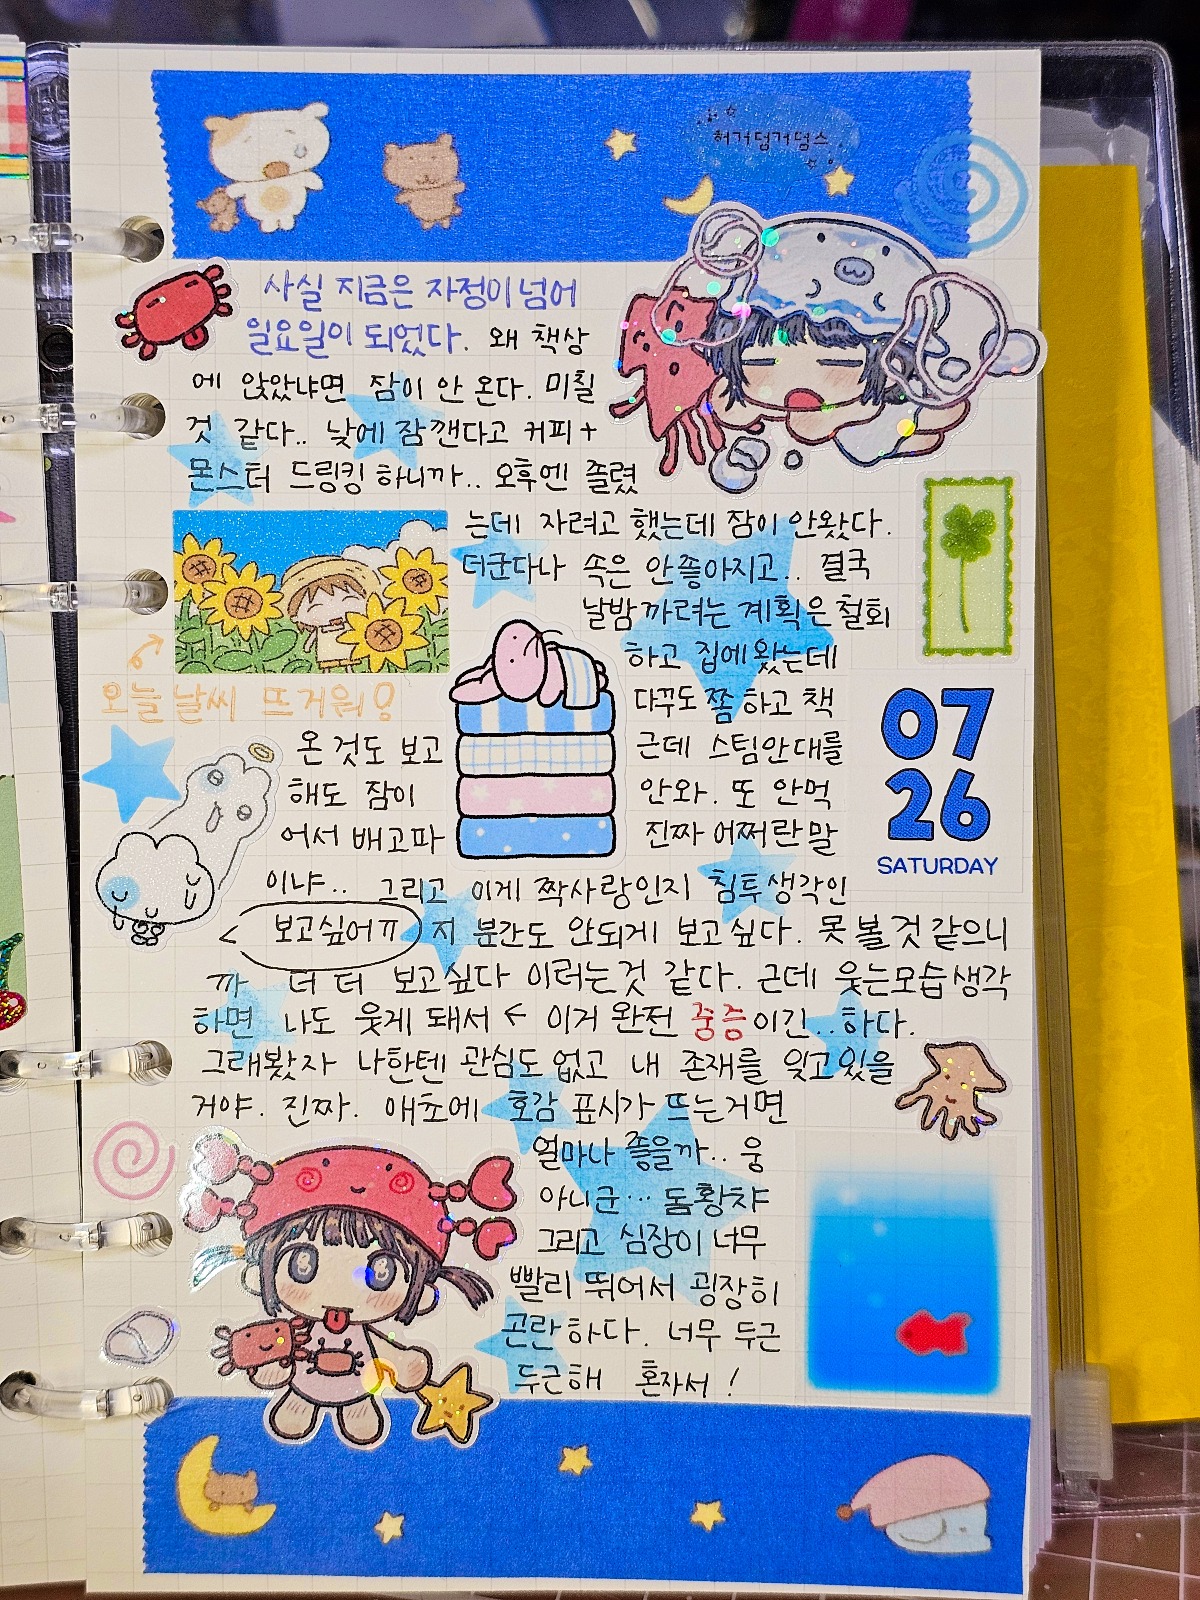 허거덩거덩스
사실 지금은 자정이 넘어
일요일이 되었다. 왜 책상
에 앉았냐면 잠이 안 온다. 미칠
것 같다.. 낮에 잠깬다고 커피+
몬스터 드링킹 하니까.. 오후엔 졸렸
는데 자려고 했는데 잠이 안왔다.
더군다나 속은 안좋아지고.. 결국
날밤 까려는 계획은 철회
하고 집에 왔는데
다꾸도 쫌 하고 책
오늘 날씨 뜨거워!
온 것도 보고 근데 스팀안대를
해도 잠이 안와. 또 안먹
어서 배고파 진짜 어쩌란 말
이냐.. 그리고 이게 짝사랑인지 침투생각인
< 보고싶어ㅠ 지 분간도 안되게 보고싶다. 못 볼 것 같으니
까 더 더 보고싶다 이러는것 같다. 근데 웃는모습생각
하면 나도 웃게 돼서 ← 이거 완전 중증이긴..하다.
그래봤자 나한텐 관심도 없고 내 존재를 잊고있을
거야. 진짜. 애초에 호감 표시가 뜨는거면
얼마나 좋을까.. 웅
아니군... 둠황챠
그리고 심장이 너무
빨리 뛰어서 굉장히
곤란하다. 너무 두근
두근해 혼자서 !
07
26
SATURDAY